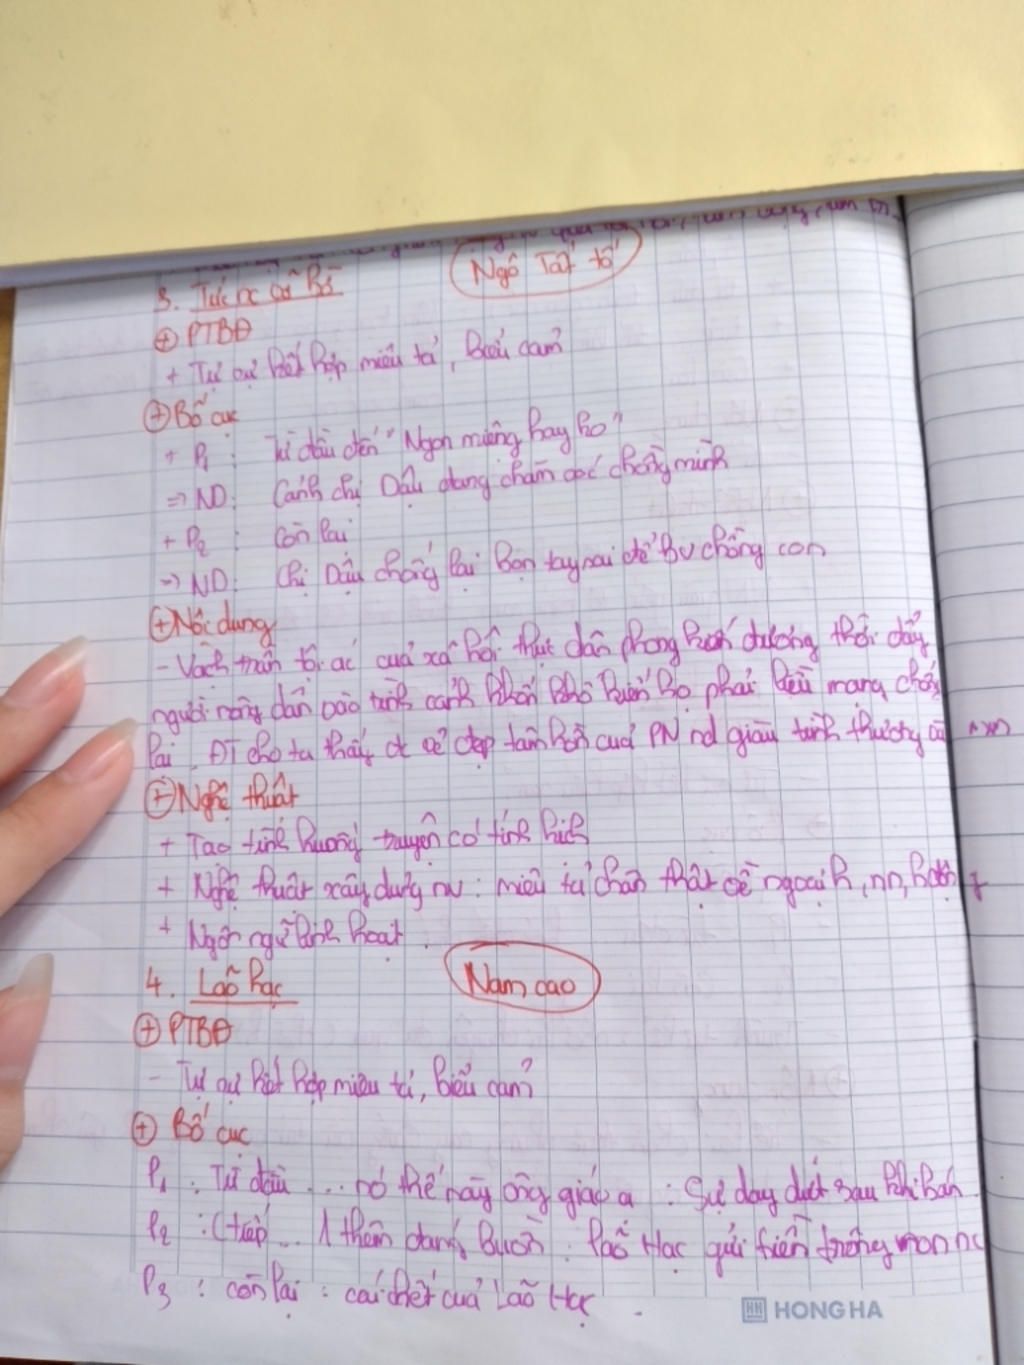 3. Tức nc vỡ bờ
Ngô Tất tố
+ PTBĐ
+ Tự sự kết hợp miêu tả, biểu cảm
+ Bố cục
+ P1 : Từ đầu đến "Ngon miệng hay ko"
=> ND: Cảnh chị Dậu đang chăm sóc chồng mình
+ P2 : còn lại
-> ND: Chị Dậu chống lại bọn tay sai để bv chồng con
+ Nội dung
- Vạch trần tội ác của xã hội thực dân phong kiến đương thời đẩy
người nông dân vào tình cảnh khốn khổ khiến họ phải liều mạng chống
lại. ĐT cho ta thấy đc vẻ đẹp tâm hồn của PN nd giàu tình thương
+ Nghệ thuật
+ Tạo tình huống truyện có tính kịch
+ Nghệ thuật xây dựng nv : miêu tả chân thật về ngoại h, nn, hành
+ Ngôn ngữ linh hoạt.
4. Lão hạc
Nam cao
+ PTBĐ
- Tự sự kết hợp miêu tả, biểu cảm
+ Bố cục
P1 : Từ đầu ... nó thế này ông giáo ạ : Sự day dứt sau khi bán
P2 : (tiếp ... 1 thêm đáng buồn : lão Hạc gửi tiền trông non nc
P3 : còn lại : cái chết của Lão Hạc.
HH HONG HA